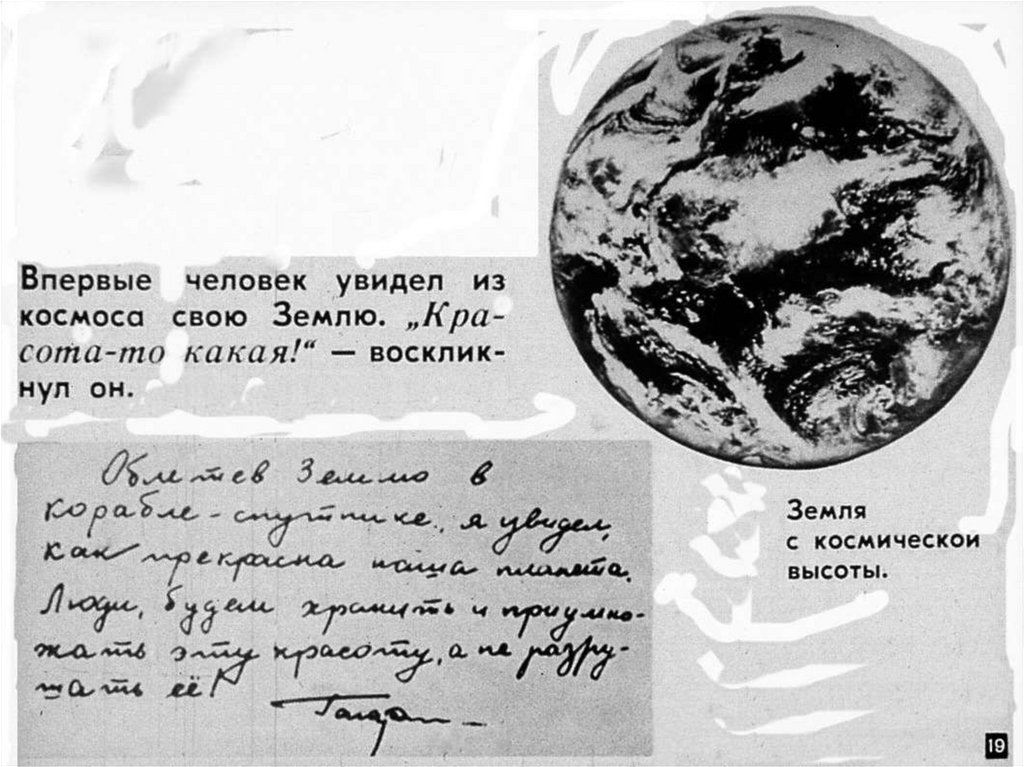 Впервые человек увидел из
космоса свою Землю. „Кра-
сота-то какая!“ — восклик-
нул он.
Облетев Землю в
корабле-спутнике, я увидел,
как прекрасна наша планета.
Люди, будем хранить и приумно-
жать эту красоту, а не разру-
шать её!
Гагарин
Земля
с космической
высоты.
19